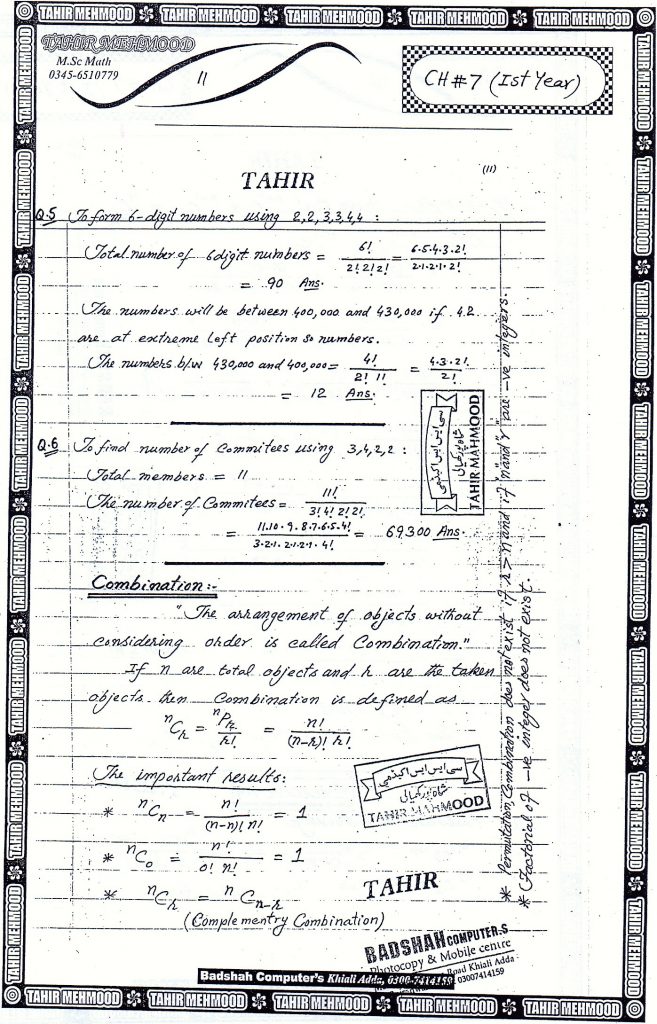 TAHIR MEHMOOD TAHIR MEHMOOD TAHIR MEHMOOD TAHIR MEHMOOD TAHIR MEHMOOD
TAHIR MEHMOOD
M.Sc Math
0345-6510779
11
CH # 7 (Ist Year)
(11)
TAHIR
Q.5 To form 6-digit numbers using 2,2,3,3,4,4 :
Total number of 6digit numbers = 6!/2!2!2! = 6.5.4.3.2!/2.1.2.1.2!
= 90 Ans.
The numbers will be between 400,000 and 430,000 if 42
are at extreme left position so numbers.
The numbers b/w 430,000 and 400,000 = 4!/2! 1! = 4.3.2!/2!
= 12 Ans.
Q.6 To find number of Commitees using 3,4,2,2 :
Total members = 11
The number of Commitees = 11!/3! 4! 2! 2!
= 11.10.9.8.7.6.5.4!/3.2.1.2.1.2.1.4! = 69300 Ans.
Combination:-
"The arrangement of objects without
considering order is called Combination."
If n are total objects and r are the taken
objects then Combination is defined as
nCr = nPr/r! = n!/(n-r)! r!
The important results:
* nCn = n!/(n-n)! n! = 1
* nC0 = n!/0! n! = 1
* nCr = nCn-r
(Complementry Combination)
* Permutation, Combination does not exist if r > n and if "n and r" are -ve integers.
* Factorial of -ve integer does not exist.
سی ایس ایس اکیڈمی
TAHIR MAHMOOD
سی ایس ایس اکیڈمی
TAHIR MAHMOOD
TAHIR
BADSHAH COMPUTER,S
Photocopy & Mobile centre
Road Khiali Adda
03007414159
Badshah Computer's Khiali Adda, 0300-7414159
TAHIR MEHMOOD TAHIR MEHMOOD TAHIR MEHMOOD TAHIR MEHMOOD TAHIR MEHMOOD